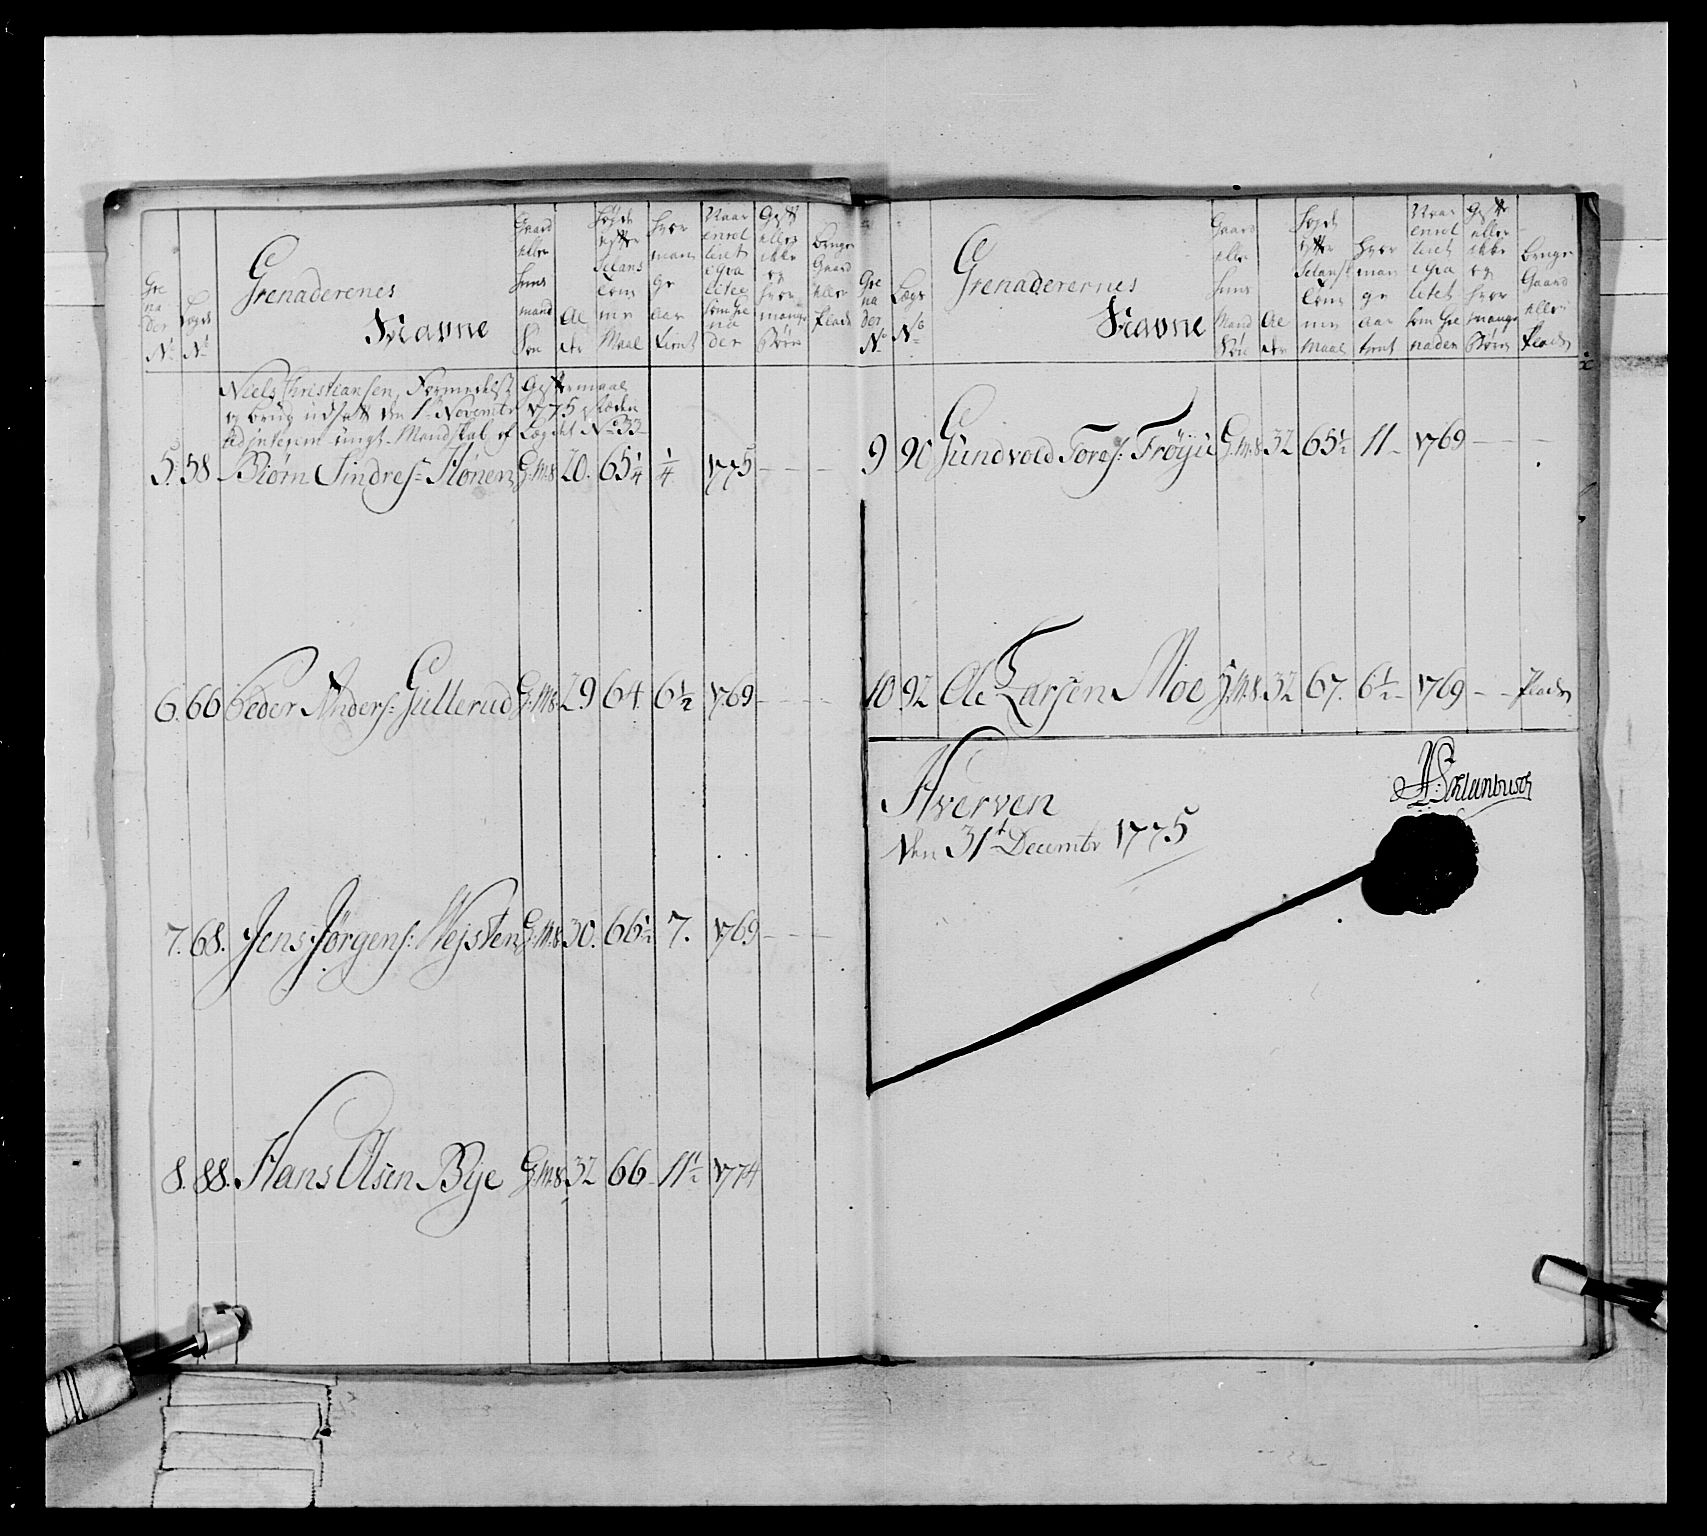 Gre
na
der
No
Lægs
No
Grenaderenes
Navne
Gaard
eller
Huus
mand
Søn
Al
der
Høyde
efter
Selans
Com
me
Maal
Hvor
man
ge
aar
tient
Naar
enrol
leret
i qva
litet
som Gre
na
der
Gift
eller
ikke
og
hvor
mange
Børn
Bruger
Gaard
eller
Plads
Niels Christiansen, Formedelst Giftermaal
og brug udsatt den 1te Novembr 1775, i stæden
ad interim ungt Mandskab af Lægdet No 33
5. 58 Biørn Sindres: Hønen G:M:S 20. 65 1/4 1/4 1775 - - -
6. 66 Peder Anders: Gullerud G:M:S 29 64. 6 1/2 1769 - - -
7. 68. Jens Jørgens: Vejsten G:M:S 30. 66 1/2 7. 1769 - - -
8. 88. Hans Olsen Bye G:M:S 32 66 11 1/2 1774
Gre
na
der
No
Lægs
No
Grenaderernes
Navne
Gaard
eller
Huus
Mand
Søn
Al
der
Høyde
efter
Selansk
Com
me
Maal
Hvor
man
ge
aar
tient
Naar
enrol
leret
i qva
litet
som Gre
nader
Gifte
eller
ikke
og
hvor
mange
Børn
Bruger
Gaard
eller
Plads
9 90 Gundvold Tores: Frøyse G:M:S 32 65 1/2 11 - 1769 - - -
10. 92 Ole Larsen Moe G:M:S. 32 67. 6 1/2 - 1769 - - Plads
Hverven
den 31te Decembr 1775